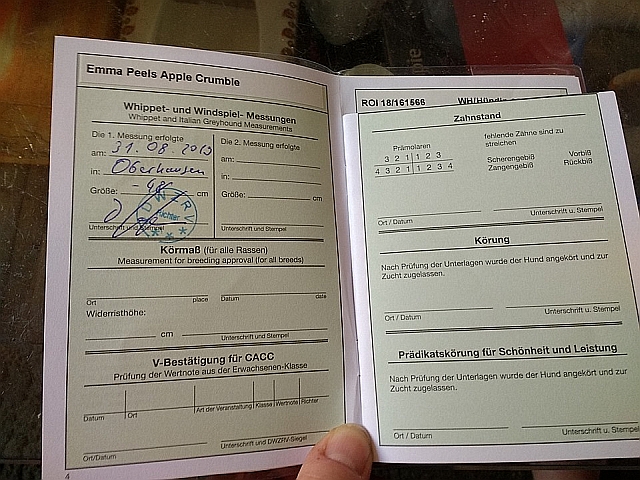 Emma Peels Apple Crumble
Whippet- und Windspiel- Messungen
Whippet and Italian Greyhound Measurements
Die 1. Messung erfolgte
am: 31. 08. 2013
in: Oberhausen
Größe: - 48 - cm
DWZRV
Richter
Unterschrift und Stempel
Die 2. Messung erfolgte
am:
in:
Größe: cm
Unterschrift und Stempel
Körmaß (für alle Rassen)
Measurement for breeding approval (for all breeds)
Ort place Datum date
Widerristhöhe:
cm Unterschrift und Stempel
V-Bestätigung für CACC
Prüfung der Wertnote aus der Erwachsenen-Klasse
Datum Ort Art der Veranstaltung Klasse Wertnote Richter
Ort/Datum Unterschrift und DWZRV-Siegel
4
ROI 18/161566 WH/Hündin
Zahnstand
Prämolaren
3 2 1 1 2 3
4 3 2 1 1 2 3 4
fehlende Zähne sind zu
streichen
Scherengebiß Vorbiß
Zangengebiß Rückbiß
Ort / Datum Unterschrift u. Stempel
Körung
Nach Prüfung der Unterlagen wurde der Hund angekört und zur
Zucht zugelassen.
Ort / Datum Unterschrift u. Stempel
Prädikatskörung für Schönheit und Leistung
Nach Prüfung der Unterlagen wurde der Hund angekört und zur
Zucht zugelassen.
Ort / Datum Unterschrift u. Stempel